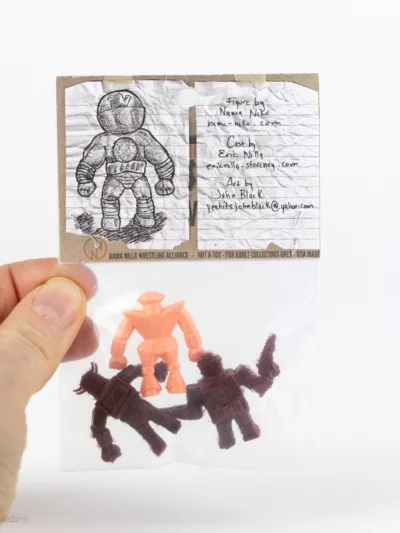 Figure by
Nama Niko
nama-niko.com
Cast by
Eric Nilla
ericnilla.storenvy.com
Art by
John Black
yeahitsjohnblack@yahoo.com
NAMA NILLA WRESTLING ALLIANCE - NOT A TOY - FOR ADULT COLLECTORS ONLY - USA MADE